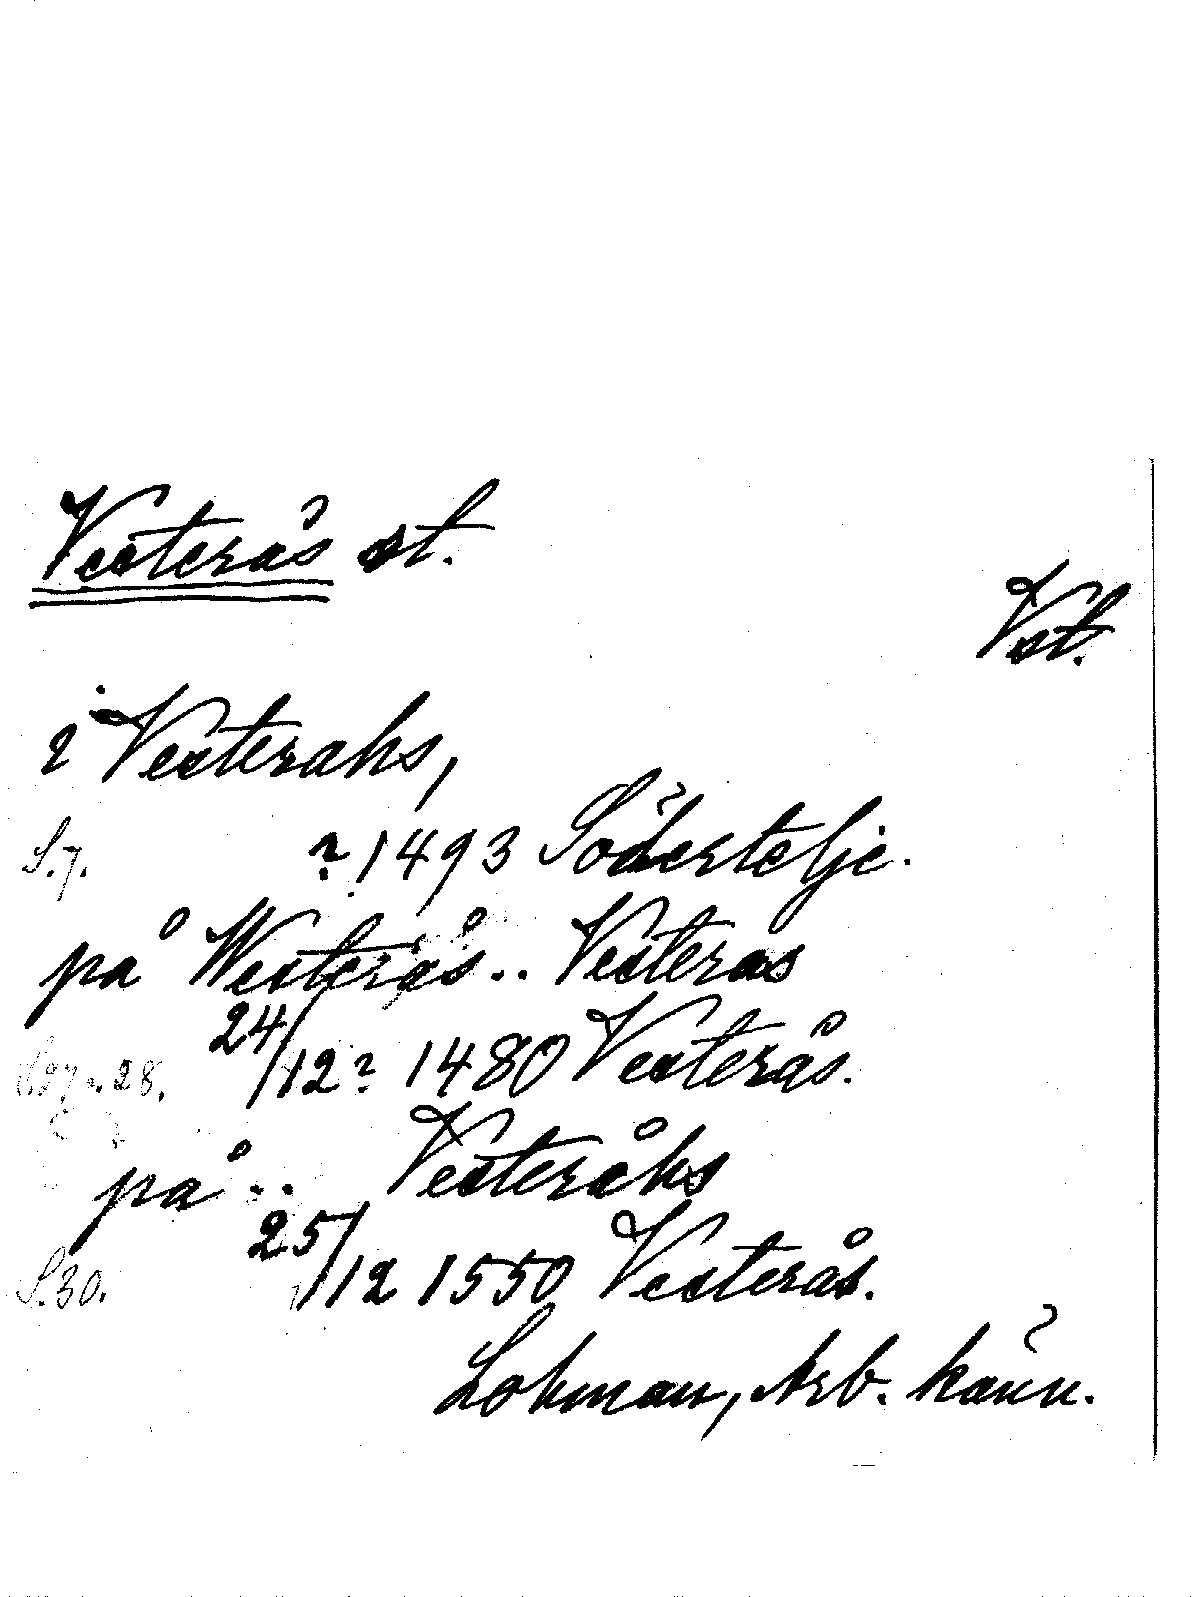 Vesterås st.
Vst.
i Vesterahs,
S.7. ? 1493 Södertelje.
på Westerås.. Vesterås
S.27 o. 28. 24/12? 1480 Vesterås.
på .. Vesteråhs
S.30. 25/12 1550 Vesterås.
Lohman, Arb. känn.